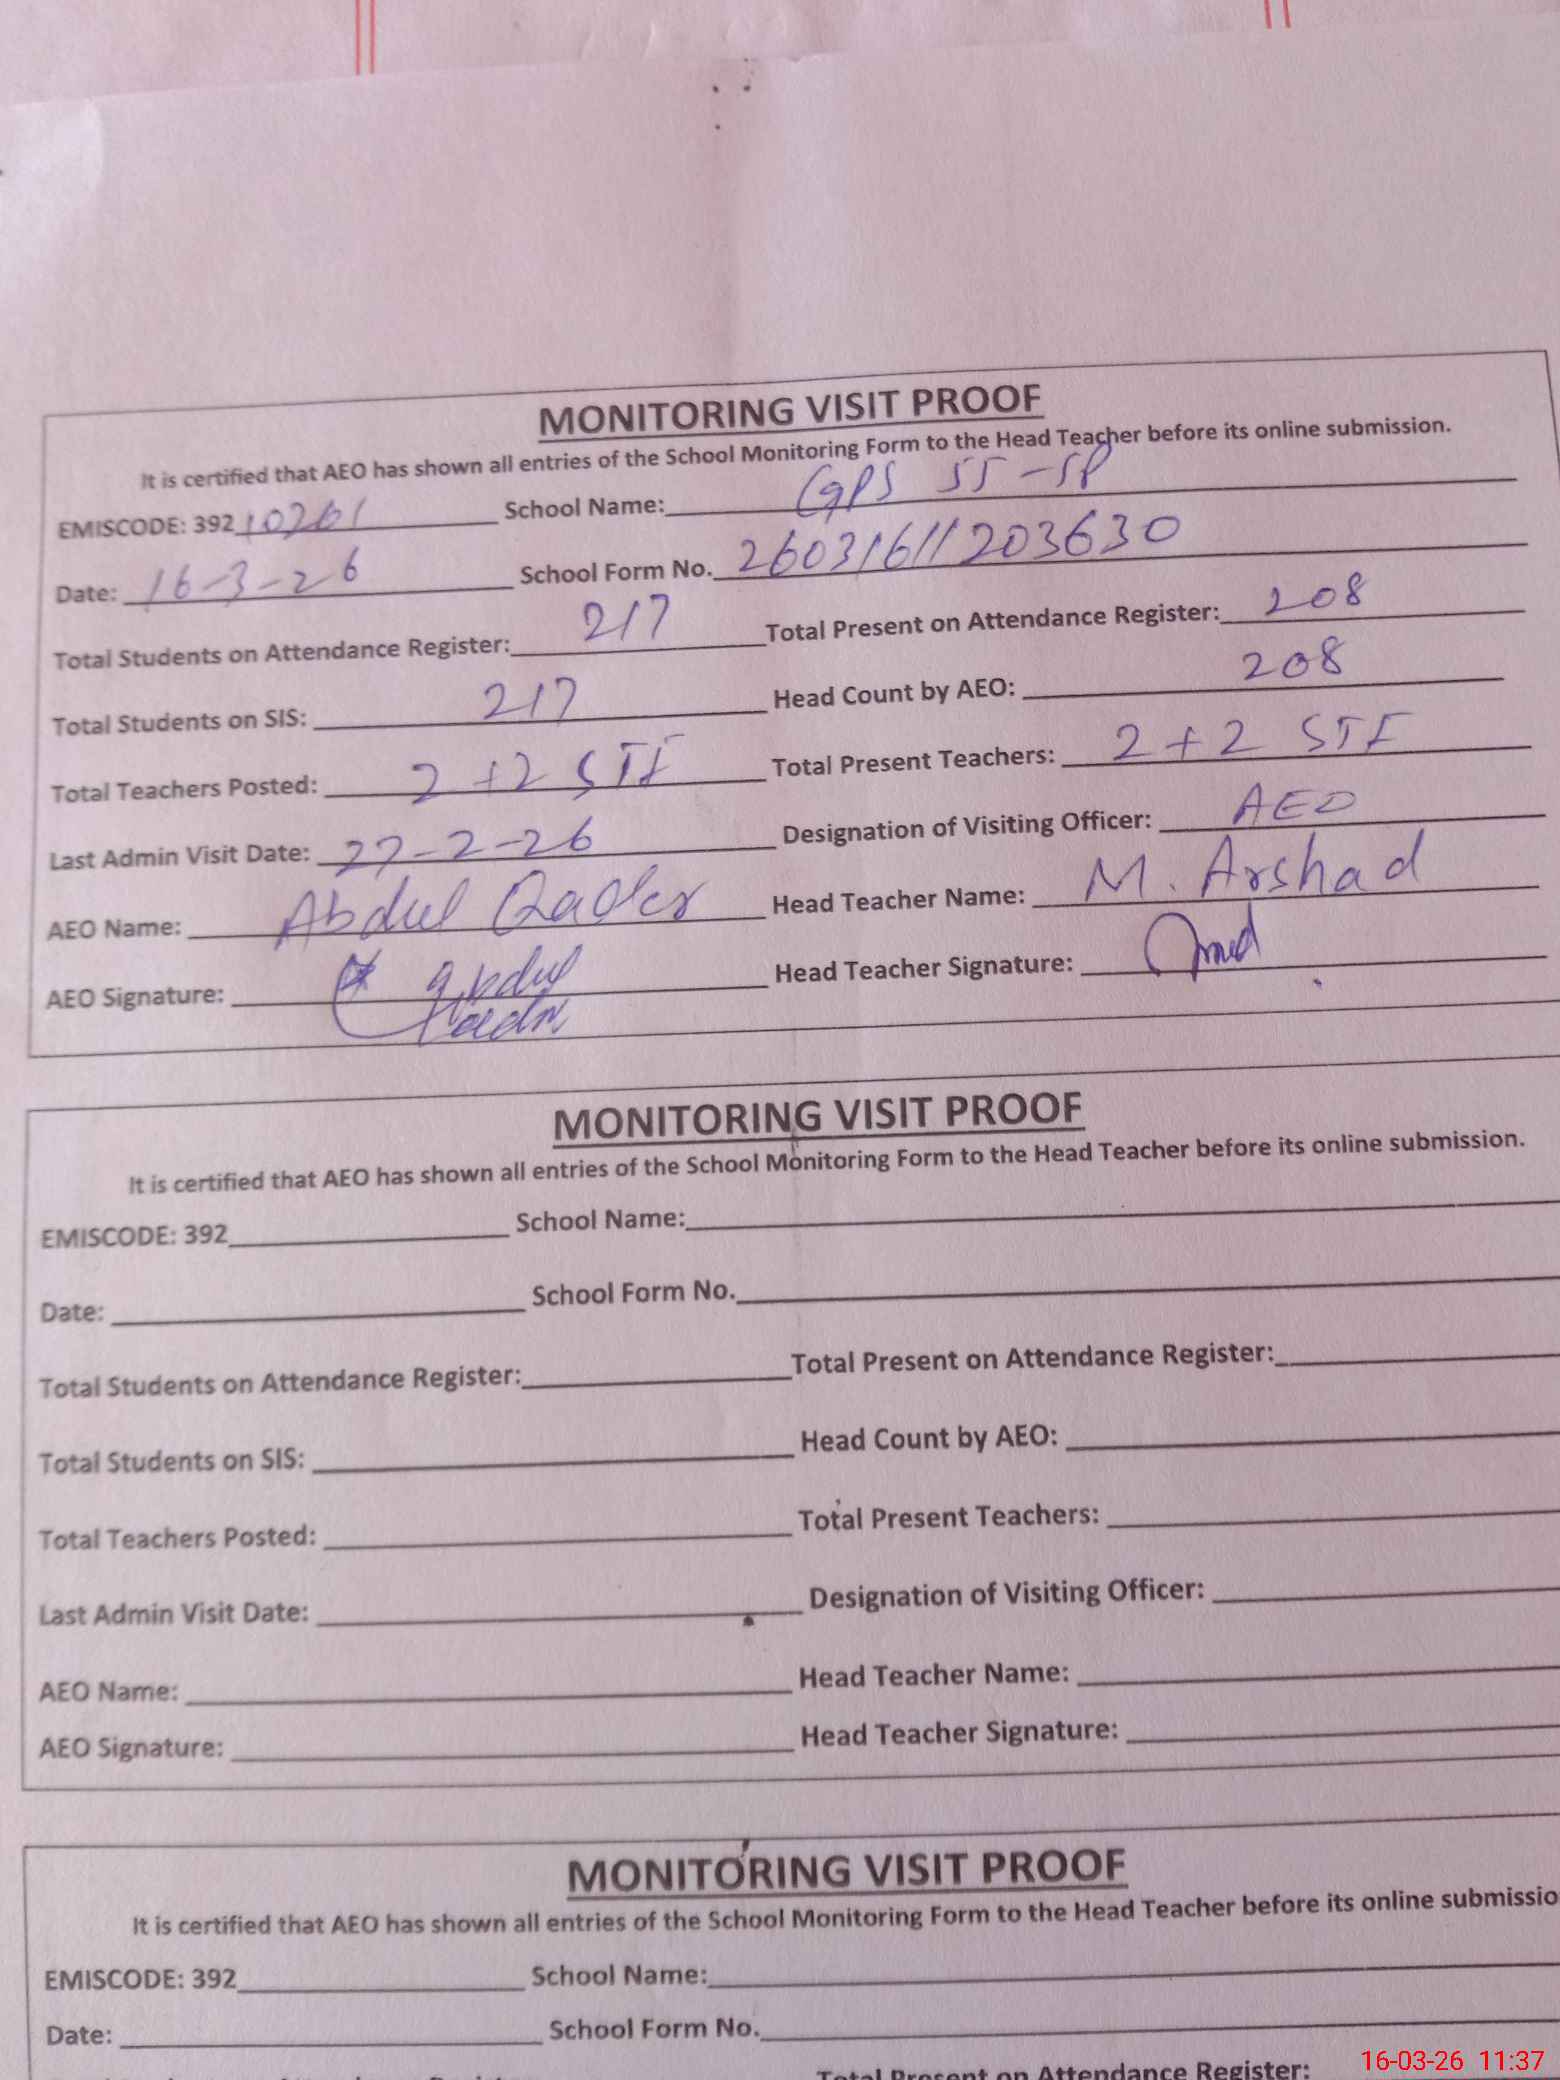 MONITORING VISIT PROOF
It is certified that AEO has shown all entries of the School Monitoring Form to the Head Teacher before its online submission.
EMISCODE: 392 10261 School Name: GPS 55-SP
Date: 16-3-26 School Form No. 26031611203630
Total Students on Attendance Register: 217 Total Present on Attendance Register: 208
Total Students on SIS: 217 Head Count by AEO: 208
Total Teachers Posted: 2+2 STI Total Present Teachers: 2+2 STI
Last Admin Visit Date: 27-2-26 Designation of Visiting Officer: AEO
AEO Name: Abdul Qader Head Teacher Name: M. Arshad
AEO Signature: Abdul Head Teacher Signature:
MONITORING VISIT PROOF
It is certified that AEO has shown all entries of the School Monitoring Form to the Head Teacher before its online submission.
EMISCODE: 392 School Name:
Date: School Form No.
Total Students on Attendance Register: Total Present on Attendance Register:
Total Students on SIS: Head Count by AEO:
Total Teachers Posted: Total Present Teachers:
Last Admin Visit Date: Designation of Visiting Officer:
AEO Name: Head Teacher Name:
AEO Signature: Head Teacher Signature:
MONITORING VISIT PROOF
It is certified that AEO has shown all entries of the School Monitoring Form to the Head Teacher before its online submissio
EMISCODE: 392 School Name:
Date: School Form No.
Total Present on Attendance Register:
16-03-26 11:37